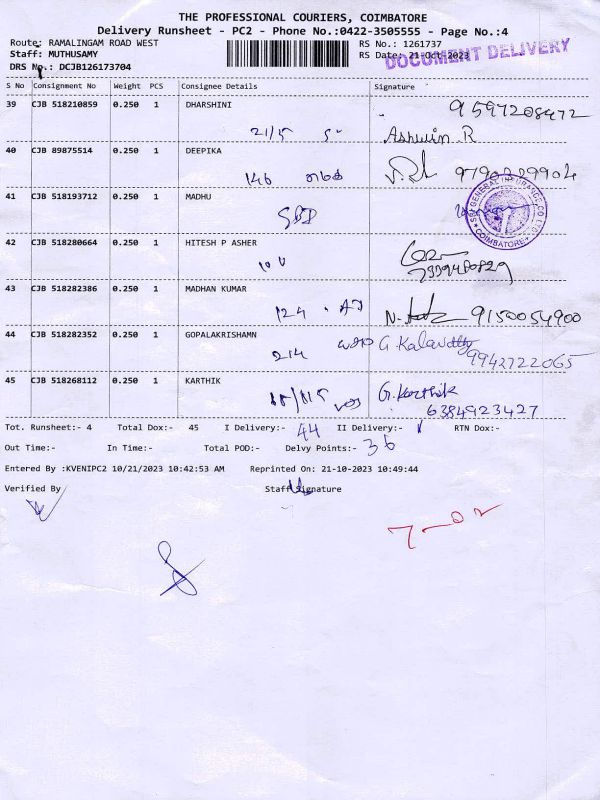 THE PROFESSIONAL COURIERS, COIMBATORE
Delivery Runsheet - PC2 - Phone No.:0422-3505555 - Page No.:4
Route: RAMALINGAM ROAD WEST RS No.: 1261737
Staff: MUTHUSAMY RS Date: 21-Oct-2023
DOCUMENT DELIVERY
DRS No.: DCJB126173704
S No Consignment No Weight PCS Consignee Details Signature
39 CJB 518210859 0.250 1 DHARSHINI 9597208472
21/5 Ashwin.R
40 CJB 89875514 0.250 1 DEEPIKA
146
41 CJB 518193712 0.250 1 MADHU
SBI GENERAL INSURANCE CO LTD COIMBATORE
42 CJB 518280664 0.250 1 HITESH P ASHER
43 CJB 518282386 0.250 1 MADHAN KUMAR
124 9150054900
44 CJB 518282352 0.250 1 GOPALAKRISHAMN
214 9942722065
45 CJB 518268112 0.250 1 KARTHIK G.Karthik
6384923427
Tot. Runsheet:- 4 Total Dox:- 45 I Delivery:- 44 II Delivery:- 1 RTN Dox:-
Out Time:- In Time:- Total POD:- Delvy Points:- 36
Entered By :KVENIPC2 10/21/2023 10:42:53 AM Reprinted On: 21-10-2023 10:49:44
Verified By Staff Signature